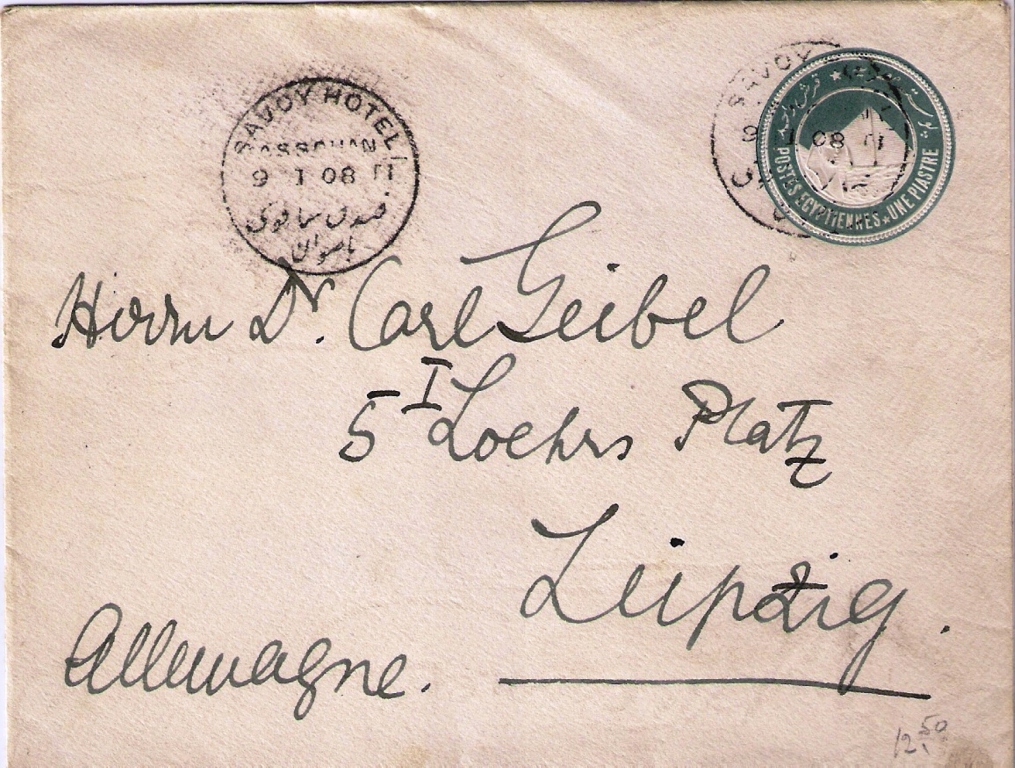 SAVOY HOTEL
ASSOUAN
9 I 08
فندق سافوى
باسوان
SAVOY
9 I 08
POSTES EGYPTIENNES ★ UNE PIASTRE
Herrn Dr. Carl Geibel
5 I Loehrs Platz
Leipzig.
Allemagne.
12.50